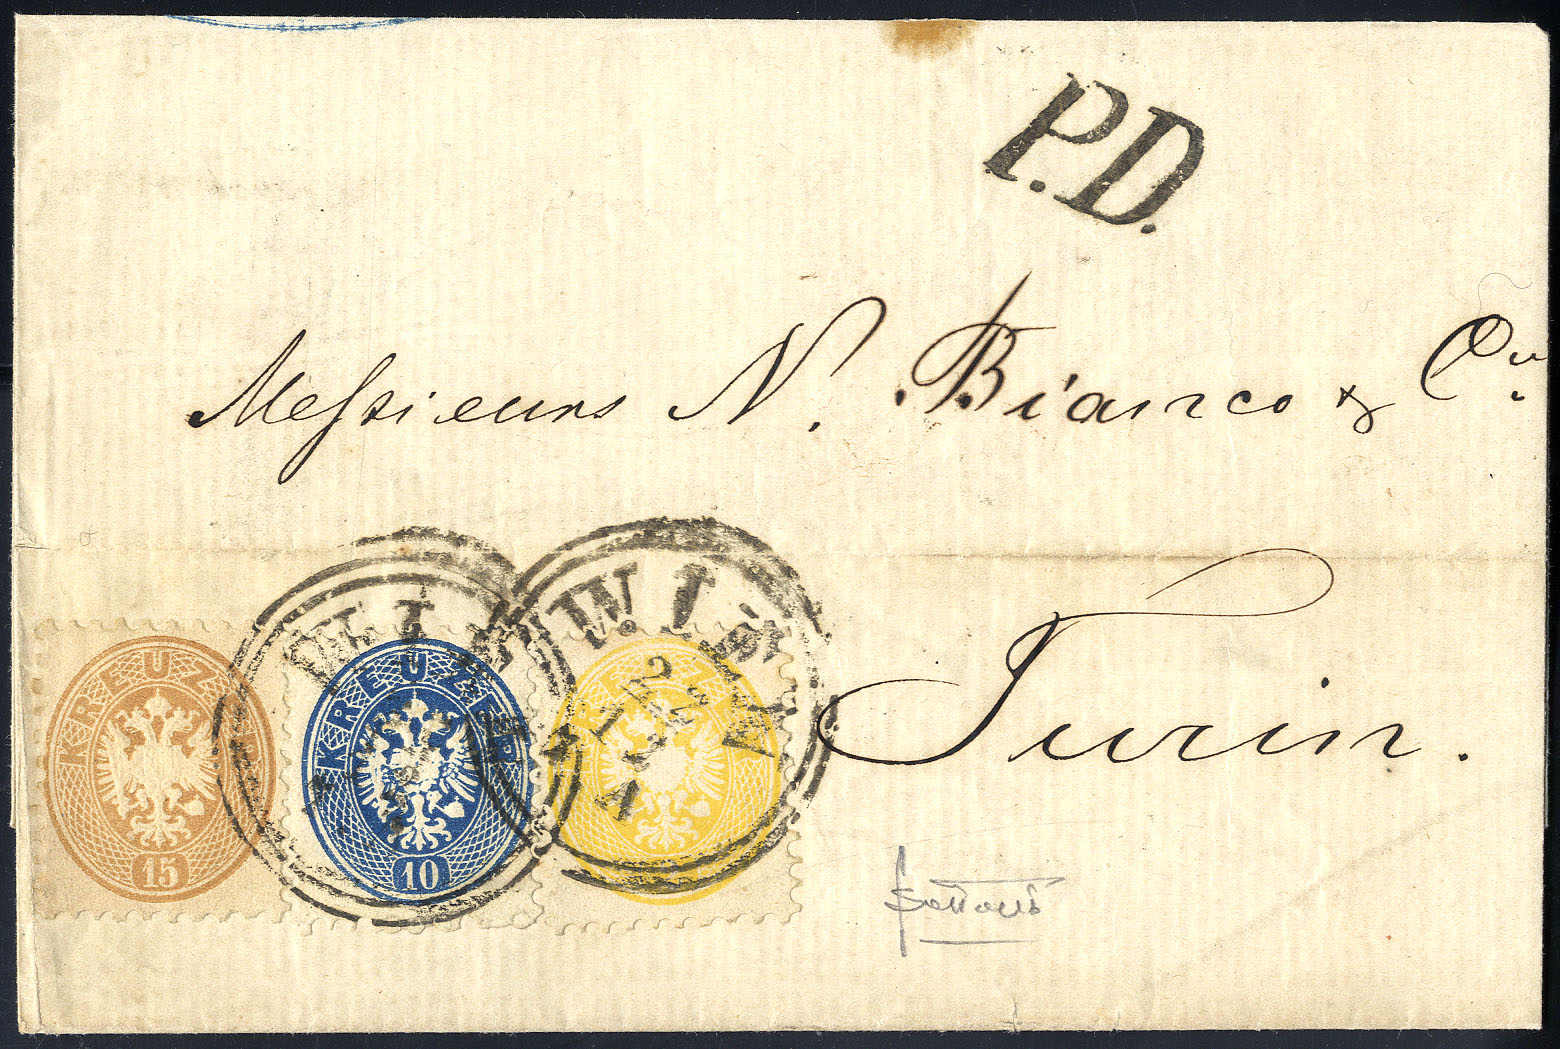 P.D.
Messieurs N. Bianco & Co.
Turin.
WIEN
WIEN
22
12
A
KREUZER
15
KREUZER
10